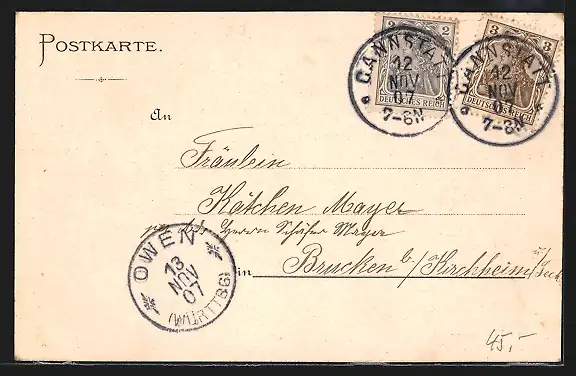 POSTKARTE.
2 2
DEUTSCHES REICH
3 3
DEUTSCHES REICH
CANNSTATT
12
NOV
07
7-8N
CANNSTATT
12
NOV
07
7-8N
An
Fräulein
Kätchen Mayer
Herrn Schäfer Mayer
in Brucken b/Kirchheim u/Teck
OWEN
13
NOV
07
(WÜRTTBG)
45,-